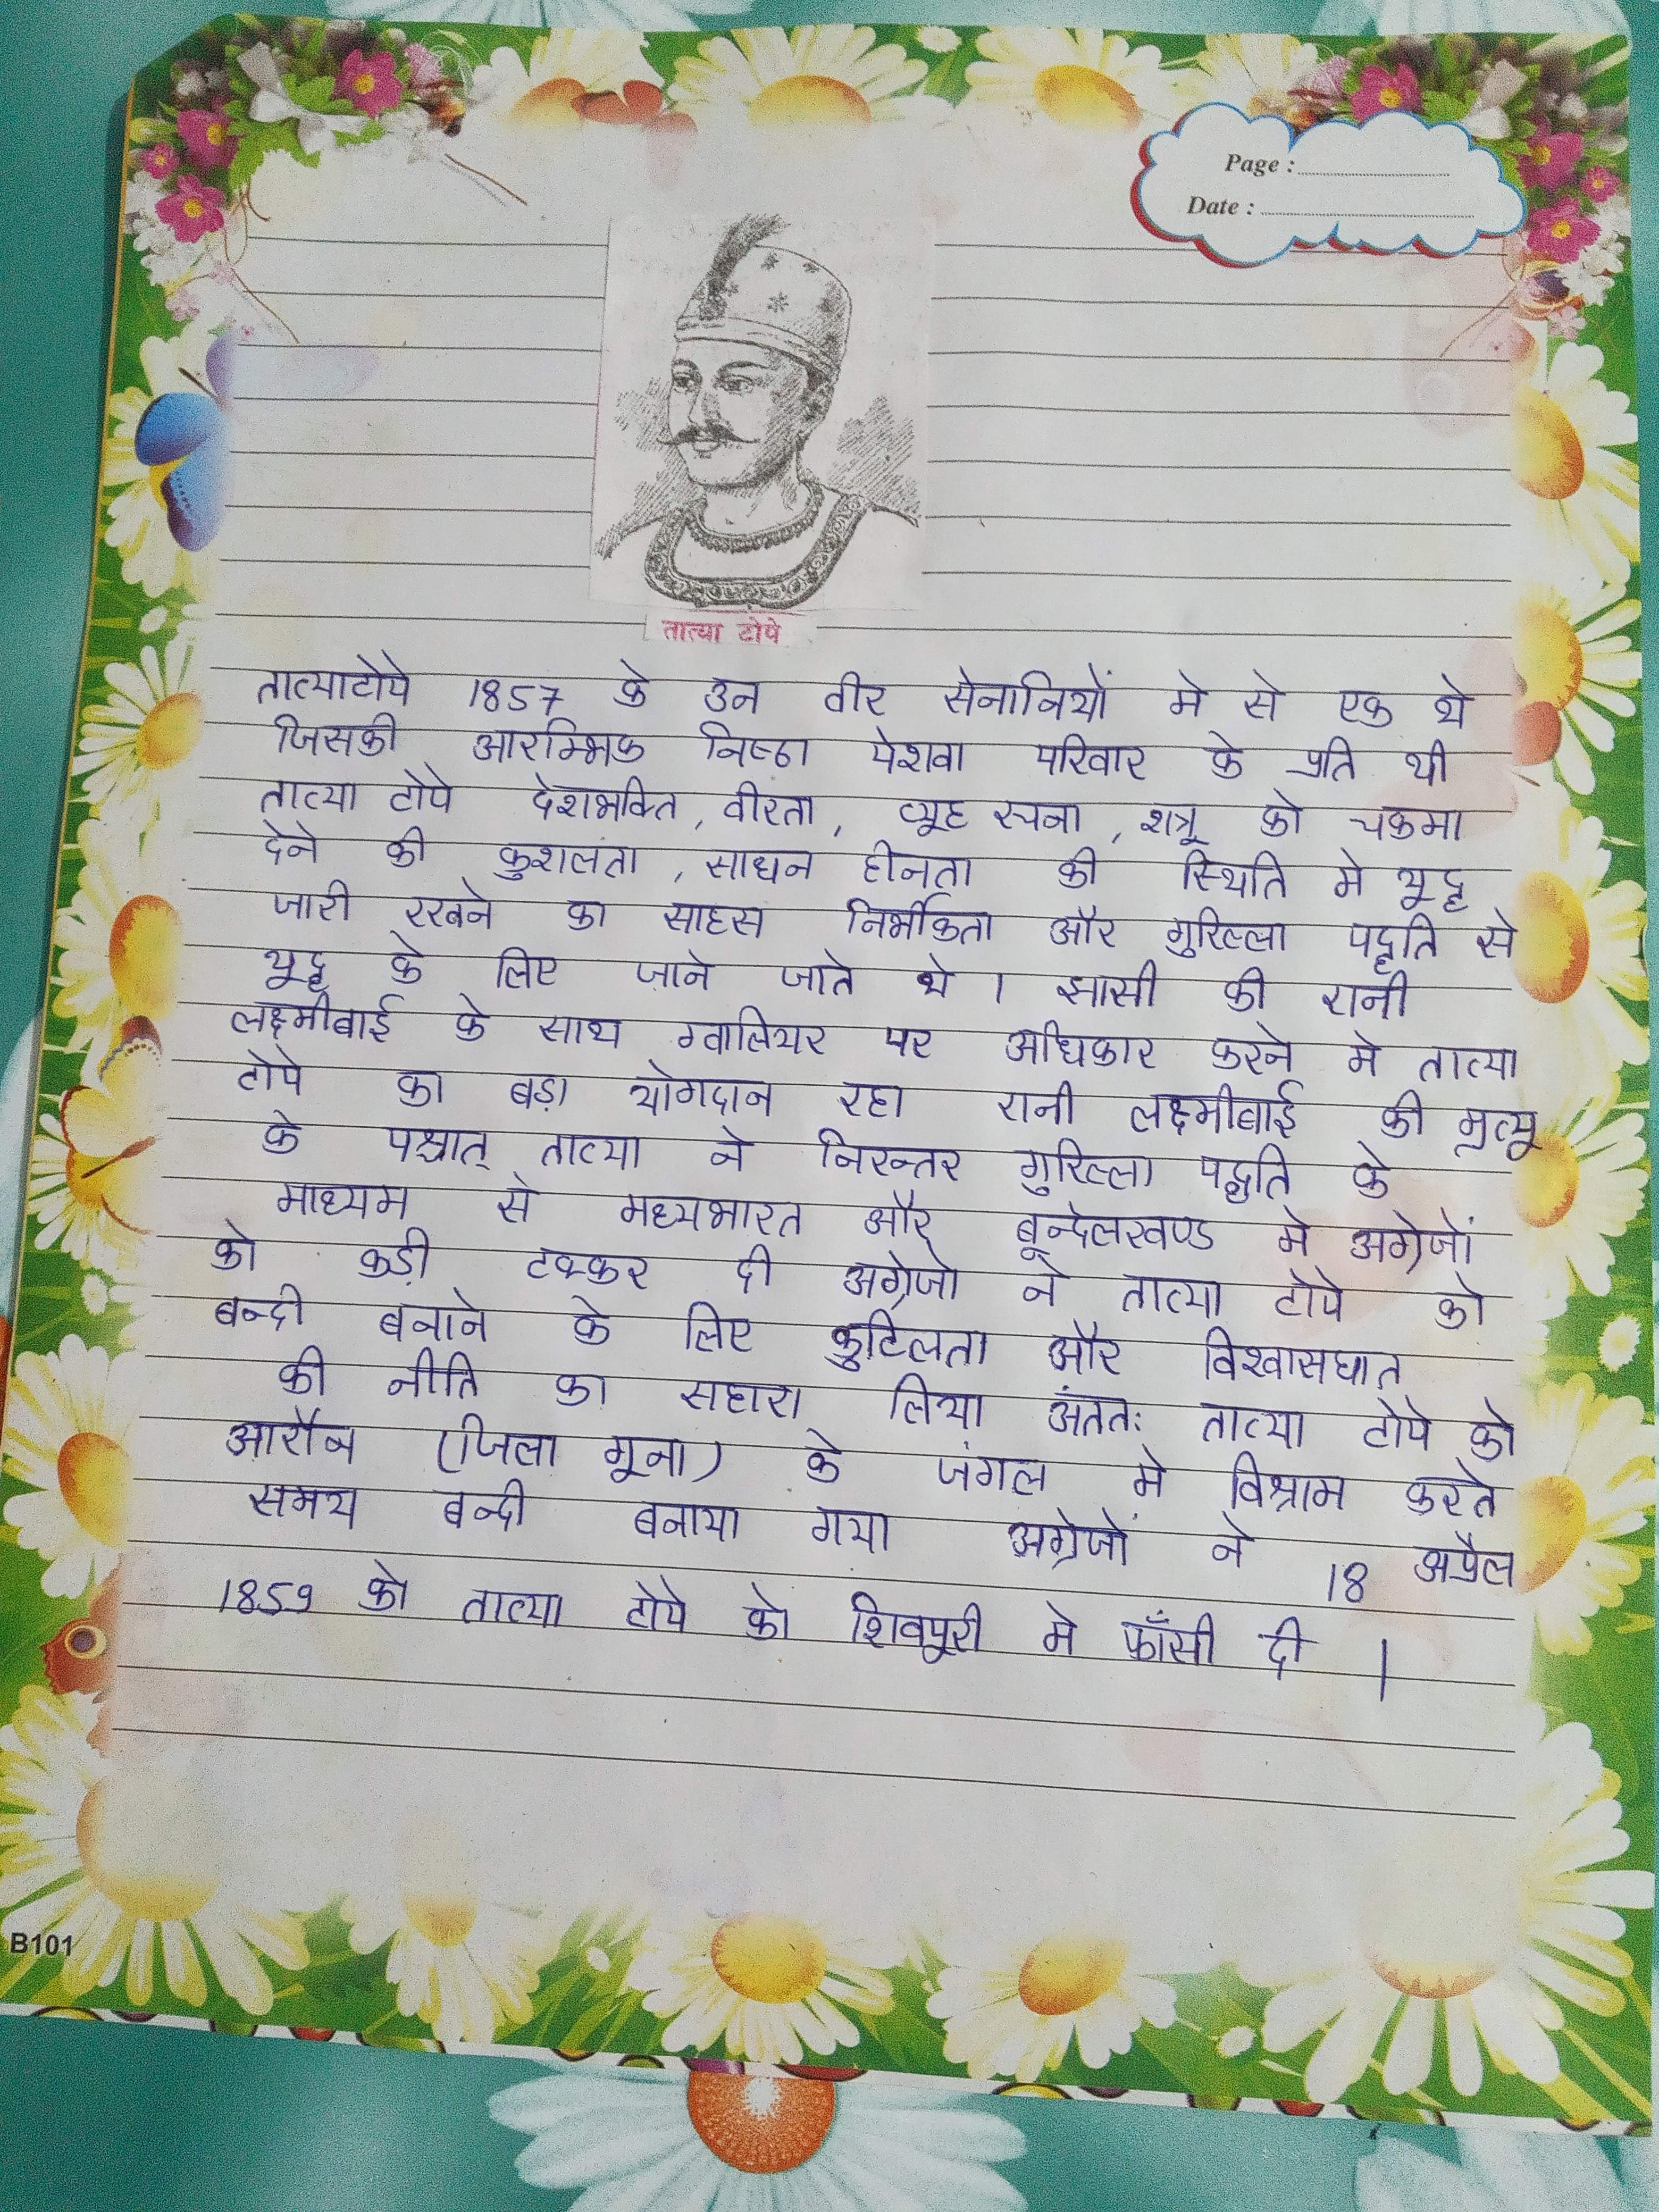 Page :
Date :
तात्या टोपे
तात्याटोपे 1857 के उन वीर सेनानियों मे से एक थे
जिसकी आरम्भिक निष्ठा पेशवा परिवार के प्रति थी
तात्या टोपे देशभक्ति, वीरता, व्यूह रचना, शत्रू को चकमा
देने की कुशलता, साधन हीनता की स्थिति मे यूद्ध
जारी रखने का साहस निर्भीकता और गुरिल्ला पद्धति से
यूद्ध के लिए जाने जाते थे । झासी की रानी
लक्ष्मीबाई के साथ ग्वालियर पर अधिकार करने मे तात्या
टोपे का बड़ा योगदान रहा रानी लक्ष्मीबाई की मृत्यू
के पश्चात् तात्या ने निरन्तर गुरिल्ला पद्धति के
माध्यम से मध्यभारत और बून्देलखण्ड मे अग्रेजों
को कड़ी टक्कर दी अग्रेजो ने तात्या टोपे को
बन्दी बनाने के लिए कुटिलता और विश्वासघात
की नीति का सहारा लिया अंततः तात्या टोपे को
आरौन (जिला गूना) के जंगल मे विश्राम करते
समय बन्दी बनाया गया अग्रेजों ने 18 अप्रैल
1859 को तात्या टोपे को शिवपूरी मे फाँसी दी |
B101